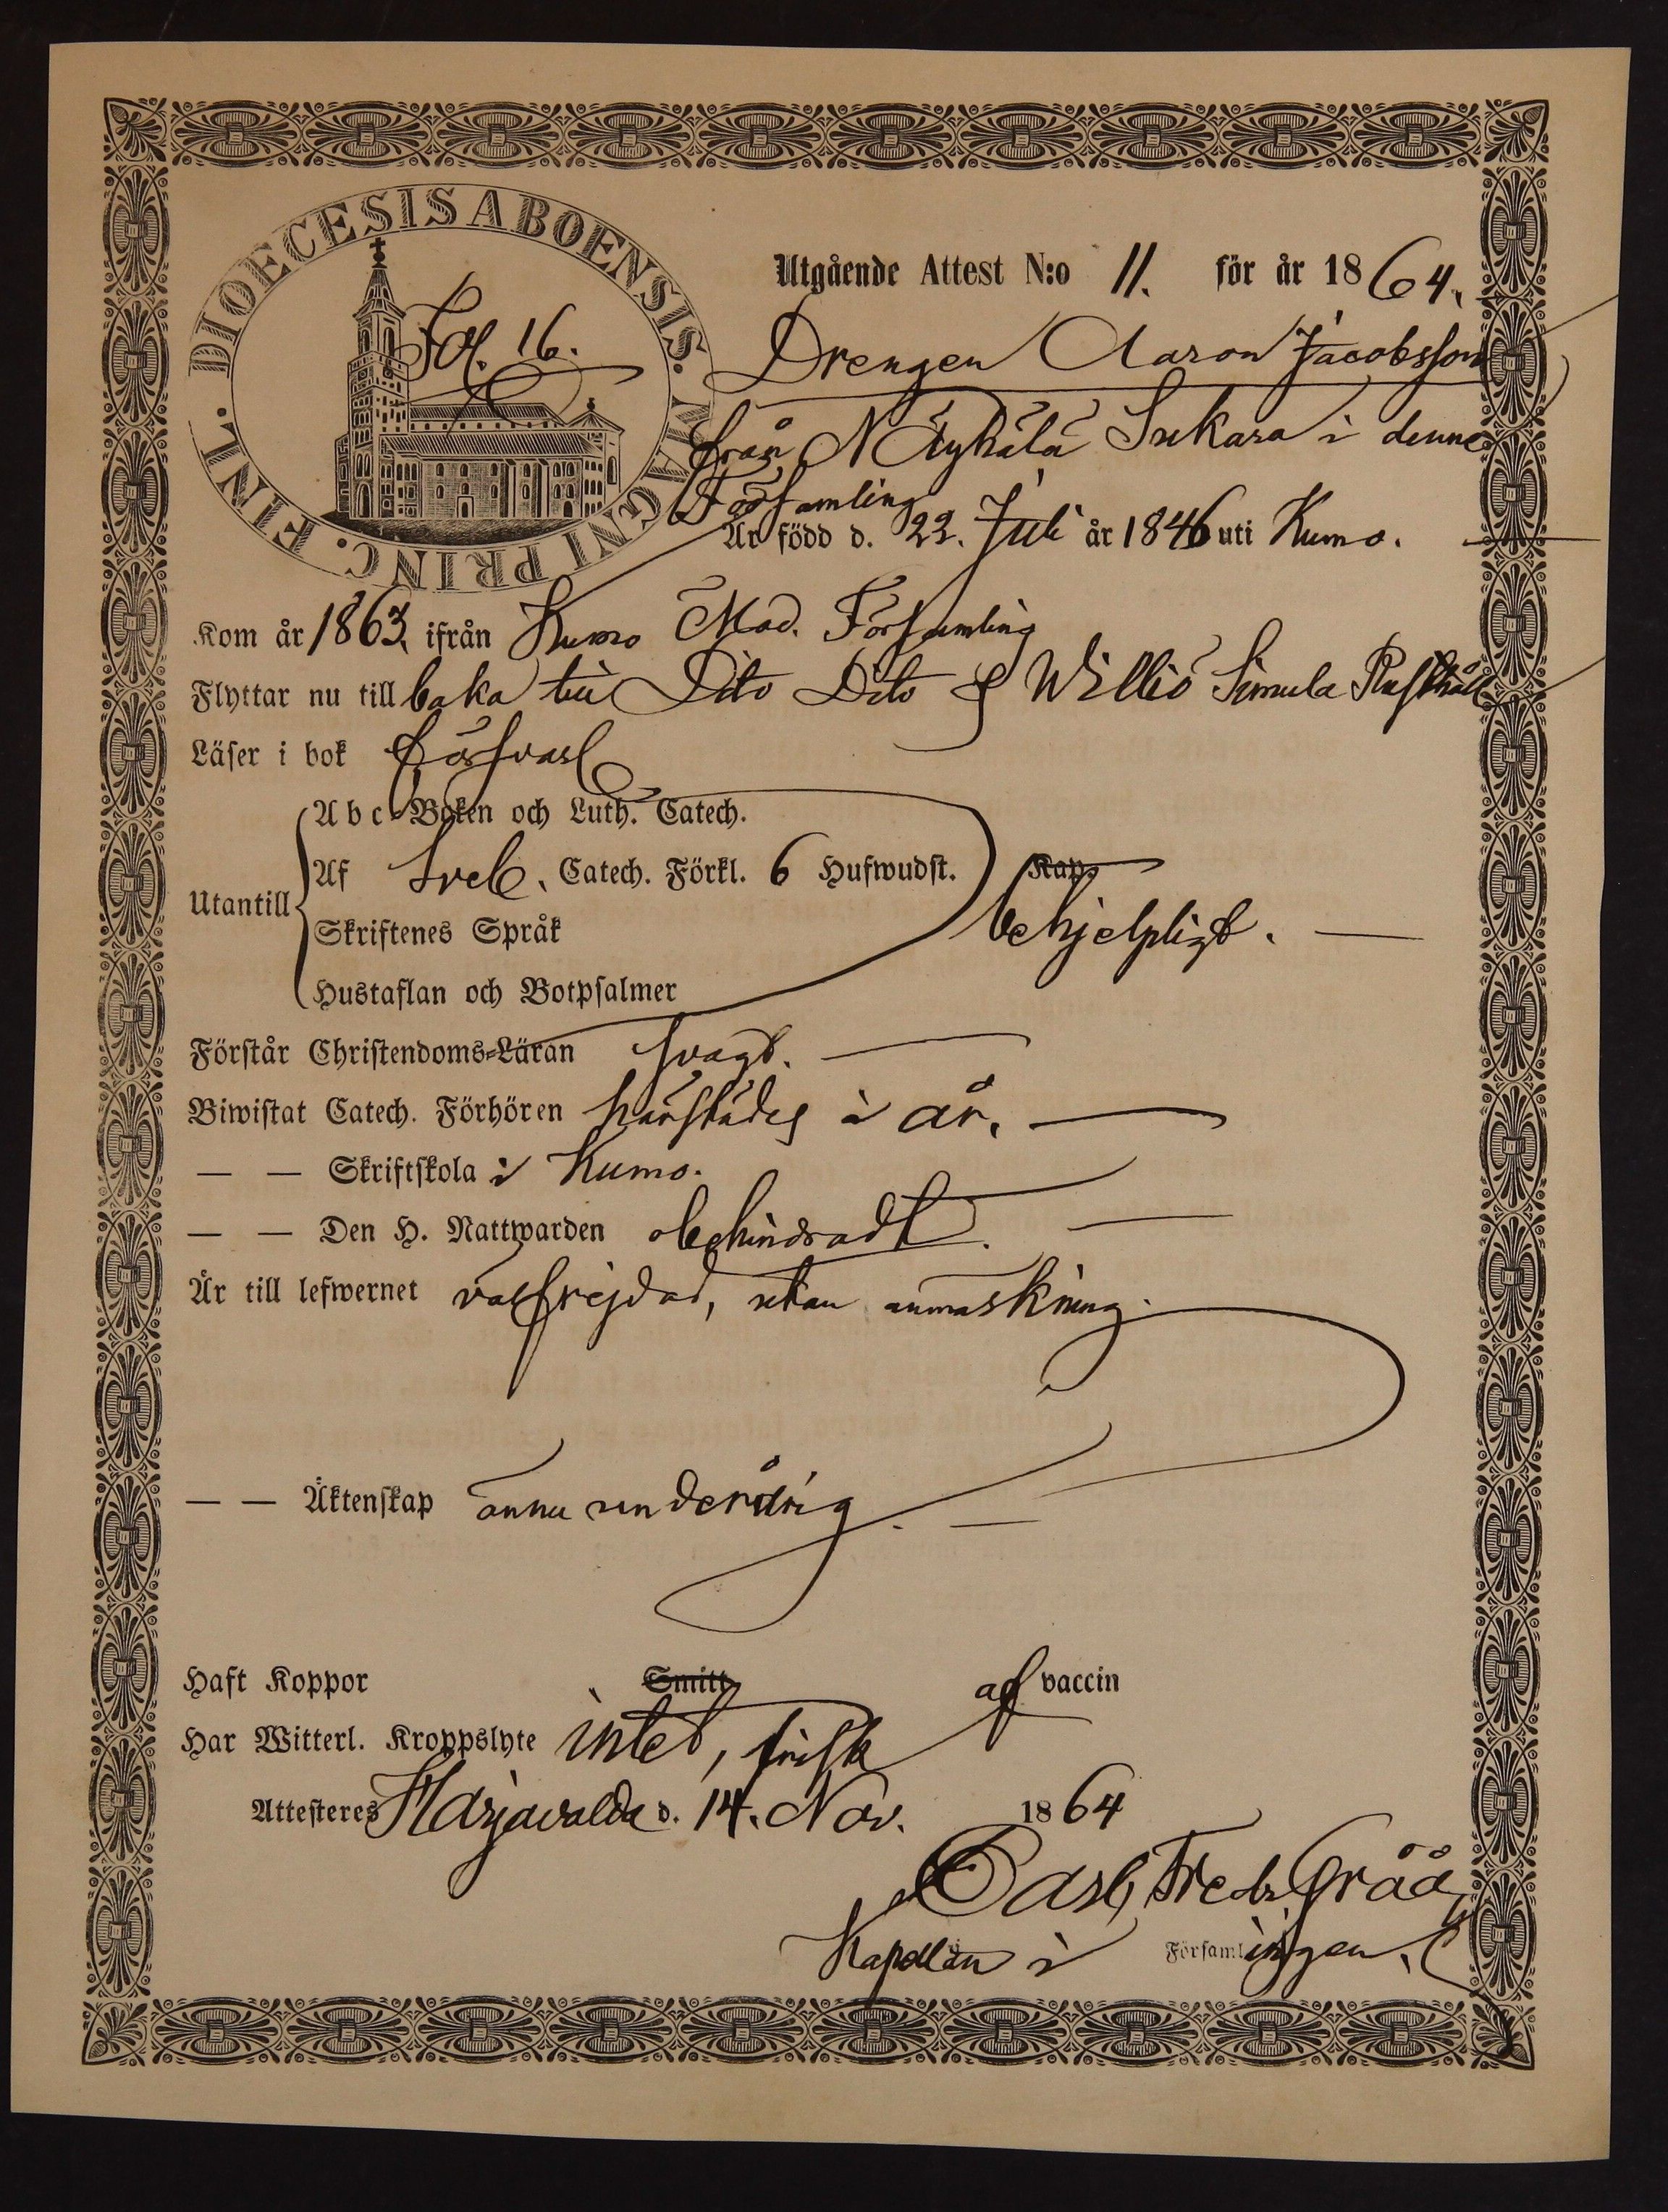 DIOECESIS ABOENSIS. MAGNI PRINC. FINL.
Fol. 16.
Utgående Attest N:o 11. för år 1864.
Drengen Aaron Jacobsson
från N Äyhälä Sukara i denne
Församling
Är född d. 22. Juli år 1846 uti Kumo.
Kom år 1863 ifrån Kumo Mod. Församling
Flyttar nu till baka till Dito Dito & Willio Simula Rusthåll
Läser i bok försvarl
Utantill
Abc-Boken och Luth. Catech.
Af Sveb. Catech. Förkl. 6 Hufwudst. Kap.
Skriftenes Språk behjelpligt.
Hustaflan och Botpsalmer
Förstår Christendoms-Läran svagt.
Biwistat Catech. Förhören härstädes i år.
— — Skriftskola i Kumo.
— — Den H. Nattwarden obehindradt.
Är till lefwernet välfrejdad, utan anmärkning.
— — Äktenskap ännu underårig.
Haft Koppor Smitt af vaccin
Har Witterl. Kroppslyte intet, frisk
Attesteres Harjavalda d. 14. Nov. 1864
Carl Fredr. Gråå
Kapellan i Församlingen.